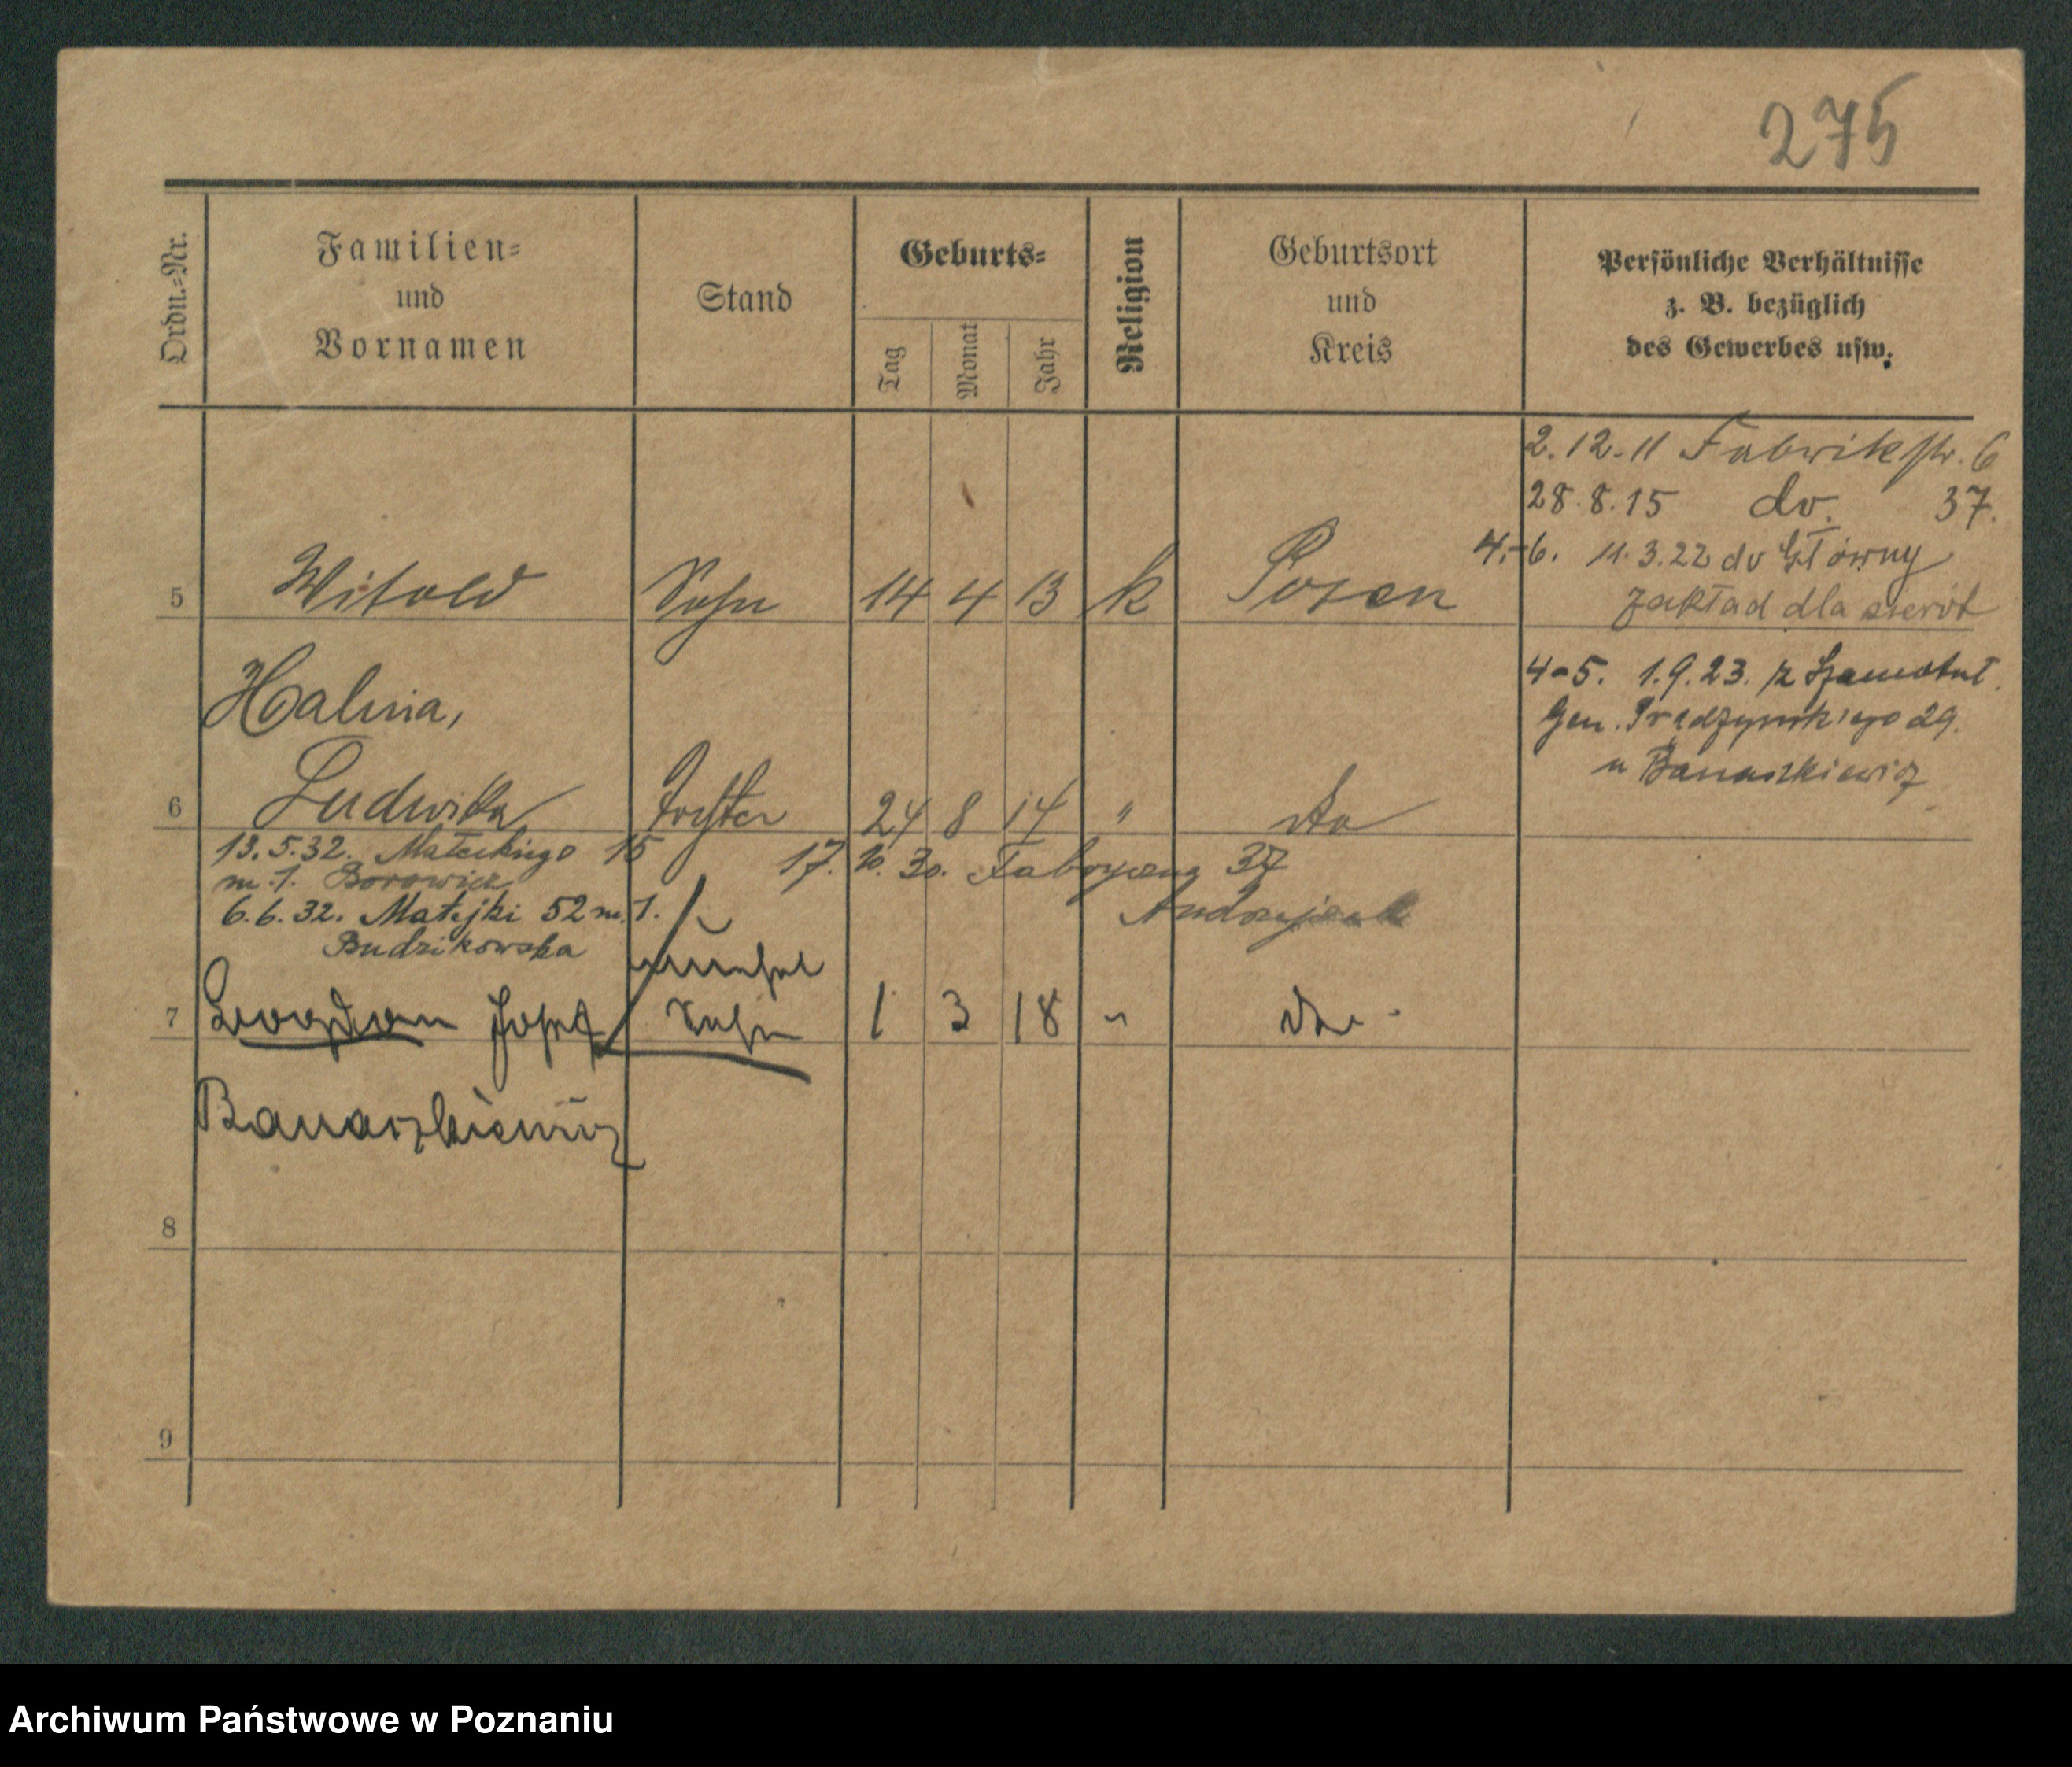 275
Ordn.=Nr.
Familien=
und
Vornamen
Stand
Geburts=
Tag
Monat
Jahr
Religion
Geburtsort
und
Kreis
Persönliche Verhältnisse
z. B. bezüglich
des Gewerbes usw.
2.12.11 Fabrikstr. 6
28.8.15 do. 37.
4.-6. 11.3.22 do Główny
zakład dla sierót
5 Witold Sohn 14 4 13 k Posen
4-5. 1.9.23. z Szamotuł
Gen. Prądzyńskiego 29.
u Banaszkiewicz
Halina,
6 Ludwika Tochter 24 8 14 " do
13.5.32. Małeckiego 15
m. 1. Borowicz
17. 10. 30. Fabryczna 37
Andrzejczak
6.6.32. Matejki 52 m. 1.
Budzikowska
unehel
7 Bogdan Josef Sohn 1 3 18 " do
Banaszkiewicz
8
9
Archiwum Państwowe w Poznaniu